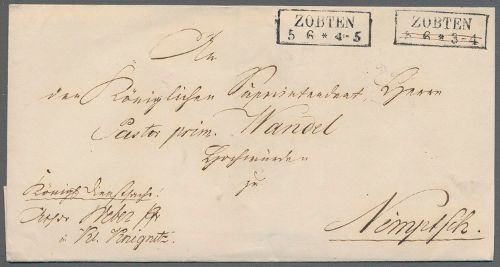 ZOBTEN
5 6 * 4-5
ZOBTEN
5 6 * 3-4
An
den Königlichen Superintendent, Herrn
Pastor prim. Wandel
Hochwürden
zu
Nimptsch.
Königl. Dienstsache!
Weber
Kl. Kniegnitz.